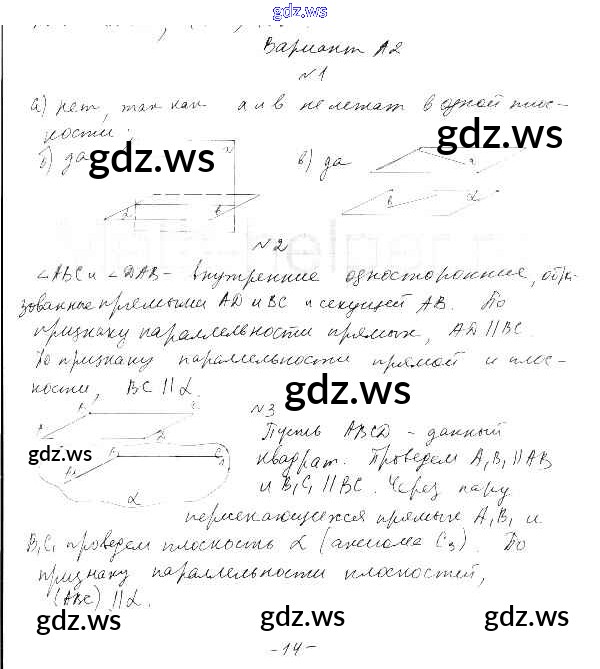 gdz.ws
Вариант А2
№1
а) нет, так как а и в не лежат в одной плос-
кости.
б) да
в) да
gdz.ws
gdz.ws
№2
∠ABC и ∠DAB - внутренние односторонние, обра-
зованные прямыми AD и BC и секущей AB. По
признаку параллельности прямых, AD || BC.
По признаку параллельности прямой и плос-
кости, BC || α.
gdz.ws
№3
Пусть ABCD - данный
квадрат. Проведем A₁B₁ || AB
и B₁C₁ || BC. Через пару
пересекающихся прямых A₁B₁ и
B₁C₁ проведем плоскость α (аксиома C₃). По
признаку параллельности плоскостей,
(ABC) || α.
gdz.ws
α
gdz.ws
gdz.ws
gdz.ws
- 14 -